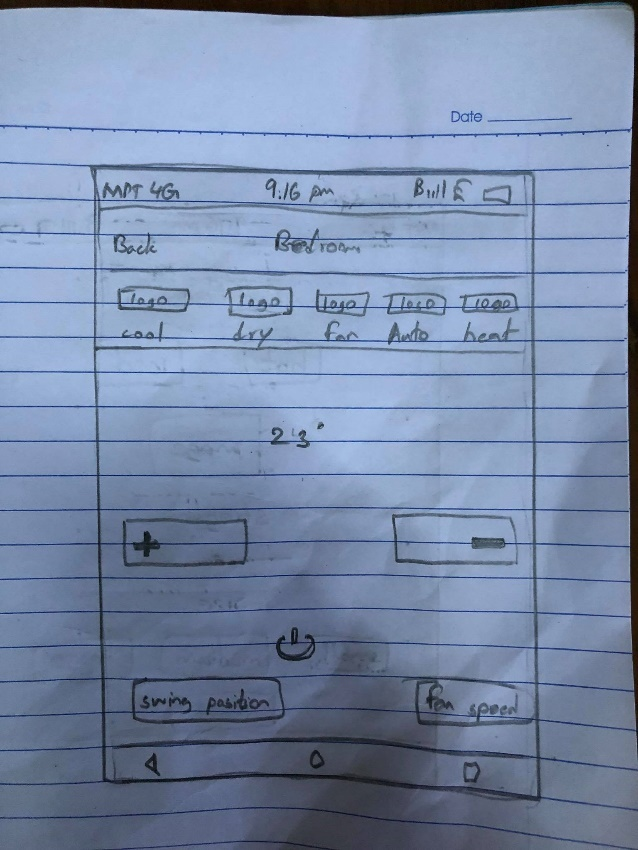 Date
MPT 4G 9:16 pm
Back Bedroom
logo logo logo logo logo
cool dry fan Auto heat
23°
+ -
swing position fan speed